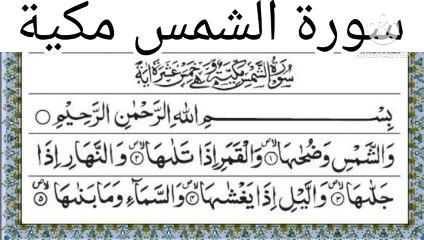 سورة الشمس مكية
سُوْرَةُ الشَّمْسِ مَكِّيَّةٌ وَّهِيَ خَمْسَ عَشَرَةَ اٰيَةً
بِسْمِ اللهِ الرَّحْمٰنِ الرَّحِيْمِ ○
وَالشَّمْسِ وَضُحٰىهَا ۝۱ وَالْقَمَرِ اِذَا تَلٰىهَا ۝۲ وَالنَّهَارِ اِذَا
جَلّٰىهَا ۝۳ وَالَّيْلِ اِذَا يَغْشٰىهَا ۝۴ وَالسَّمَآءِ وَمَا بَنٰىهَا ۝۵